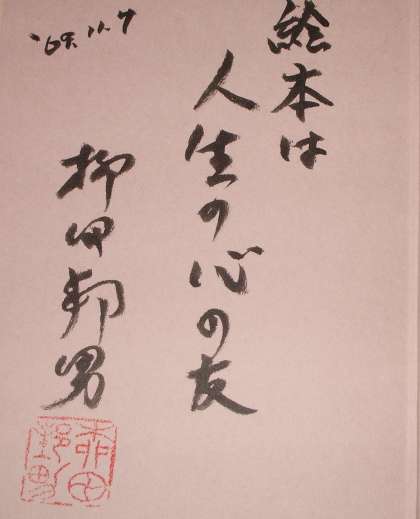 絵本は
人生の心の友
柳田邦男
'09.11.7
柳田
邦男